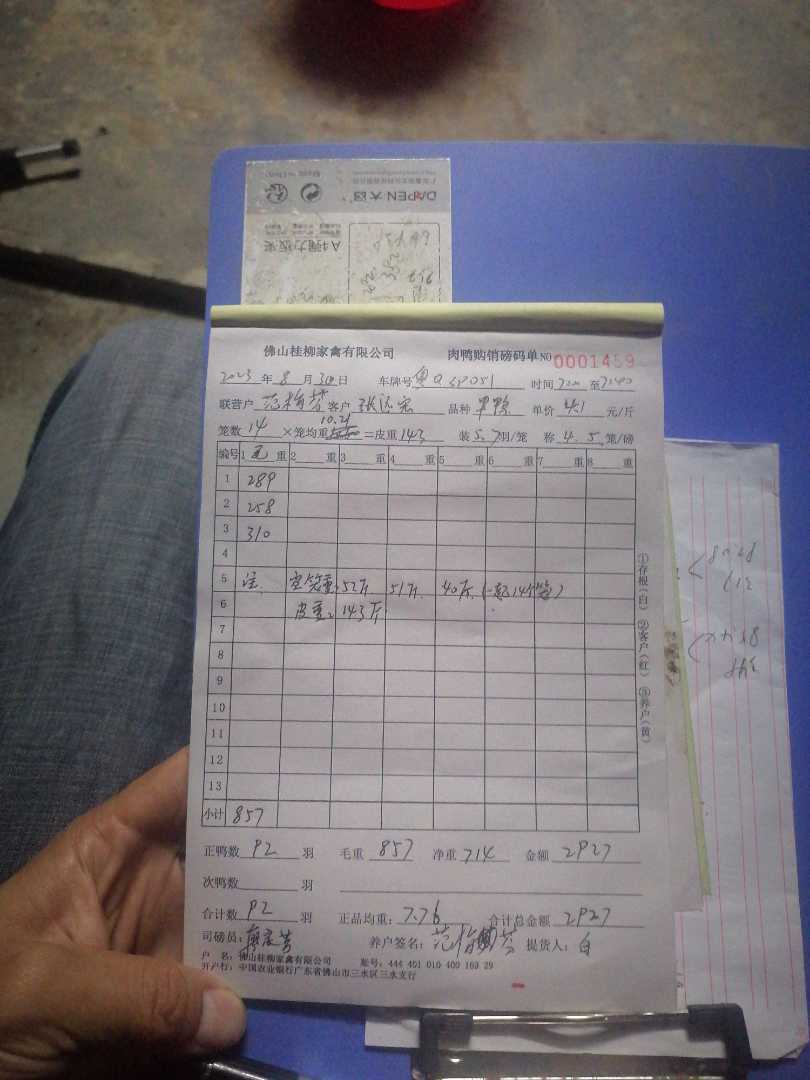 DAPEN·大
A4强力板夹
佛山桂柳家禽有限公司 肉鸭购销磅码单 NO 0001459
2023 年 8 月 30 日 车牌号 时间 至
联营户 客户 品种 单价 4.1 元/斤
笼数 14 ×笼均重 10.21 =皮重 143 装 5.7 羽/笼 称 4.5 笼/磅
编号 1 毛 重 2 重 3 重 4 重 5 重 6 重 7 重 8 重
1 289
2 258
3 310
4
5 注: 空笼重: 52斤 51斤 40斤 (一起14个笼)
6 皮重: 143斤
7
8
9
10
11
12
13
小计 857
正鸭数 92 羽 毛重 857 净重 714 金额 2927
次鸭数 羽
合计数 92 羽 正品均重: 7.76 合计总金额 2927
司磅员: 养户签名: 提货人:
户 名: 佛山桂柳家禽有限公司 账号: 444 401 010 400 169 29
开户行: 中国农业银行广东省佛山市三水区三水支行
①存根(白) ②客户(红) ③养户(黄)